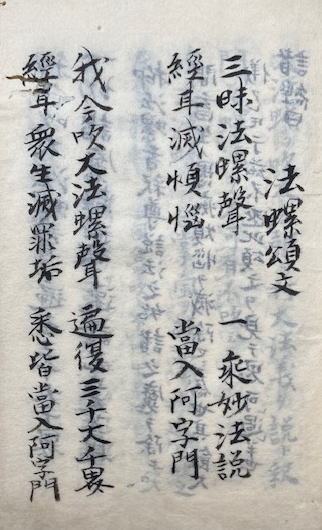 法螺頌文
三昧法螺聲 一乘妙法説
經耳滅煩惱 當入阿字門
我今吹大法螺聲 遍復三千大千界
經耳衆生滅罪垢 悉皆當入阿字門